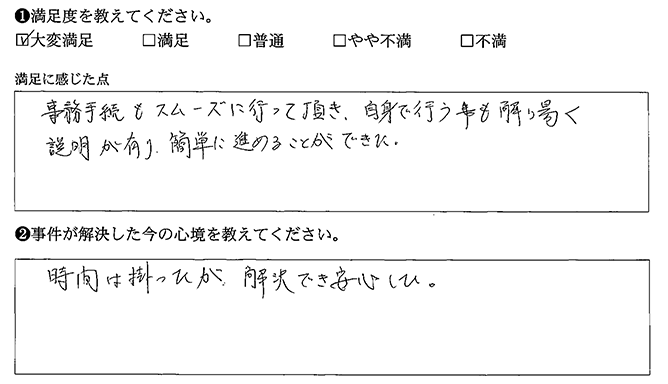 ❶満足度を教えてください。
☑大変満足 □満足 □普通 □やや不満 □不満
満足に感じた点
事務手続もスムーズに行って頂き、自身で行う事も解り易く
説明が有り、簡単に進めることができた。
❷事件が解決した今の心境を教えてください。
時間は掛ったが、解決でき安心した。